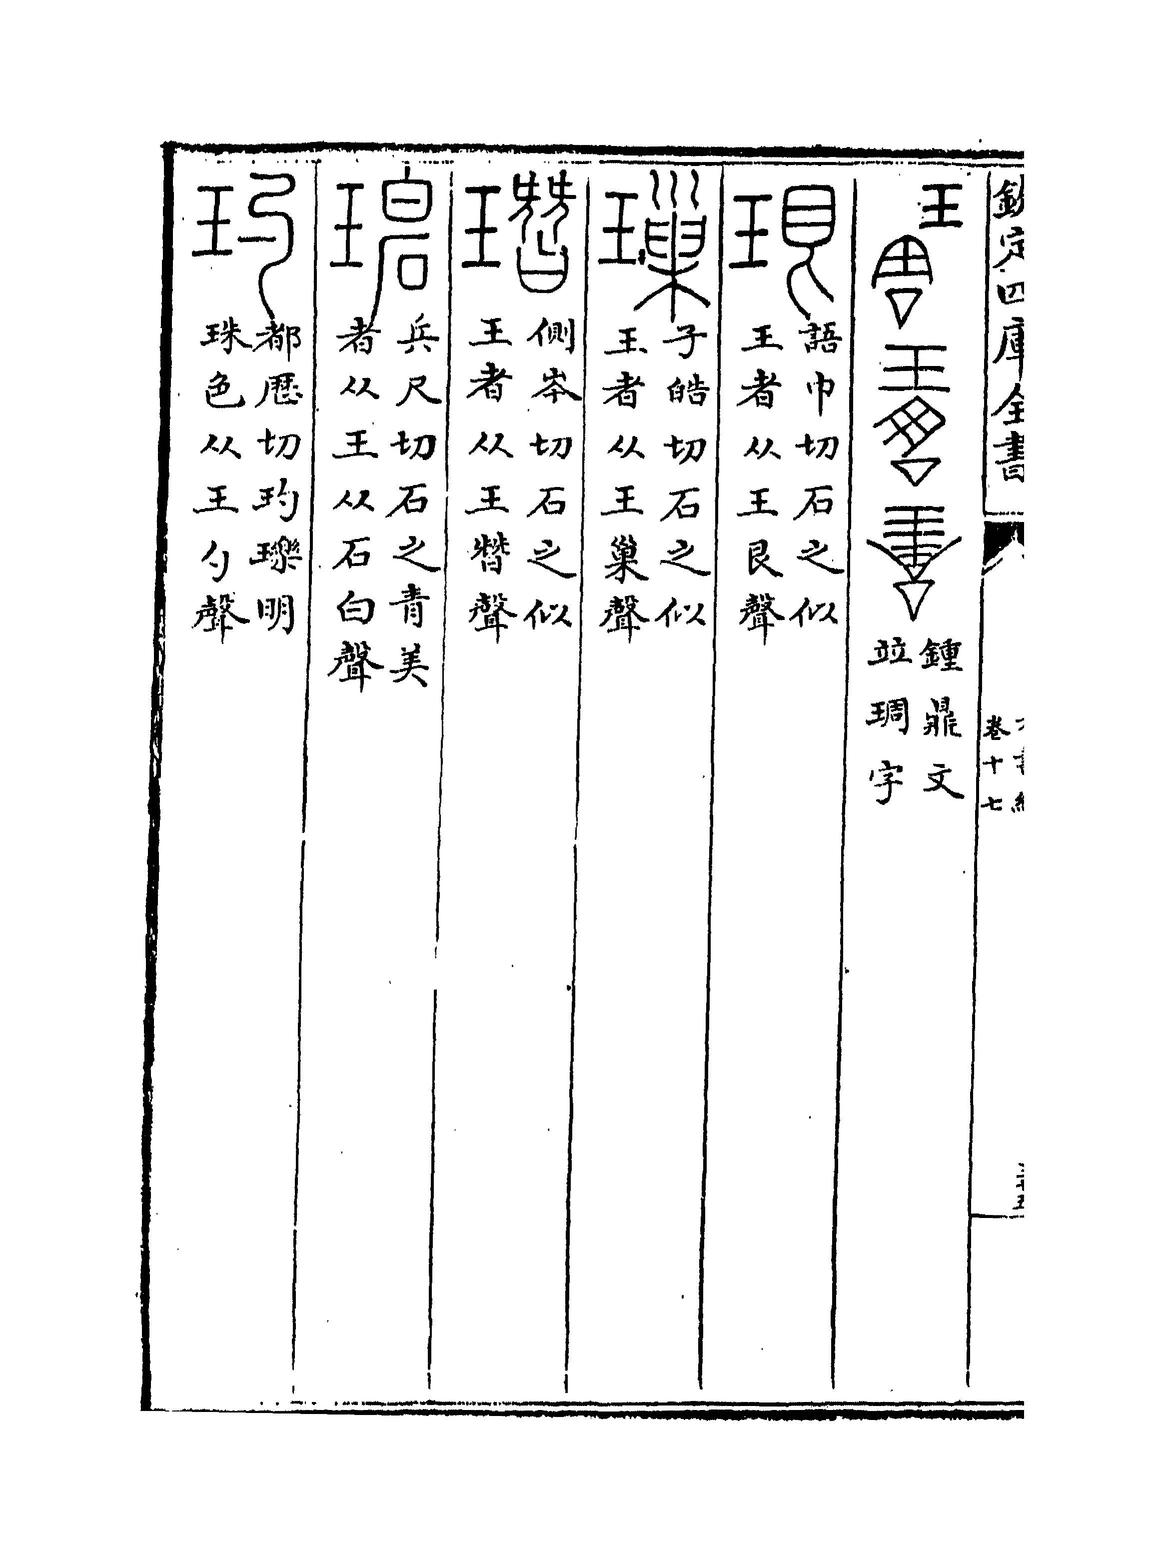 欽定四庫全書
卷十七
鍾鼎文
竝琱字
珢
語巾切石之似
王者从王艮聲
璅
子皓切石之似
玉者从王巢聲
側岑切石之似
王者从王朁聲
碧
兵尺切石之青美
者从王从石白聲
玓
都歷切玓瓅明
珠色从王勺聲